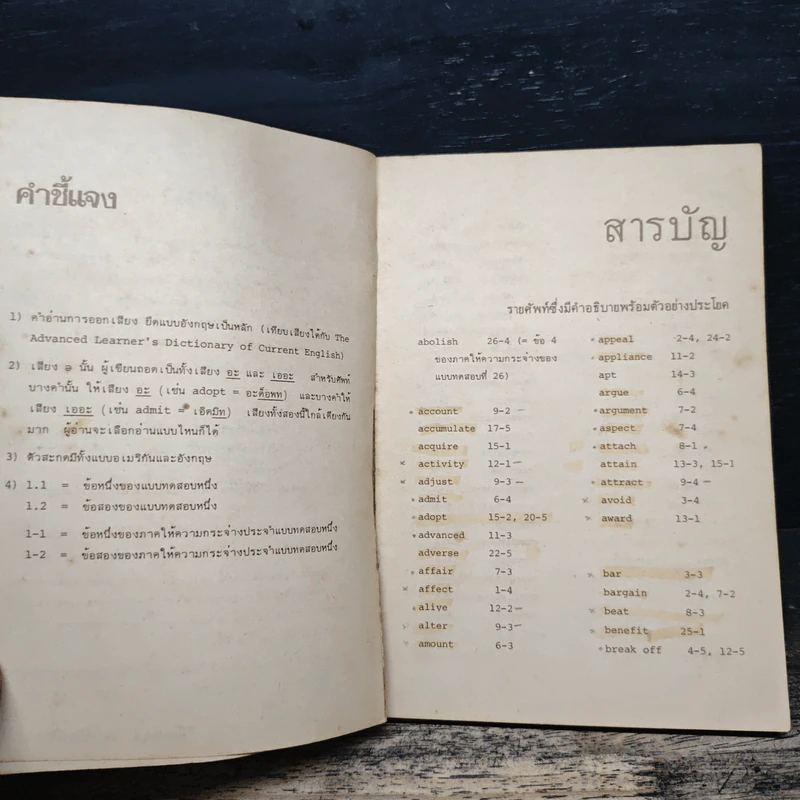 คำชี้แจง
1) คำอ่านการออกเสียง ยึดแบบอังกฤษเป็นหลัก (เทียบเสียงได้กับ The
Advanced Learner's Dictionary of Current English)
2) เสียง ə นั้น ผู้เขียนถอดเป็นทั้งเสียง อะ และ เออะ สำหรับศัพท์
บางคำนั้น ให้เสียง อะ (เช่น adopt = อะด็อพท) และบางคำให้
เสียง เออะ (เช่น admit = เอิดมิท) เสียงทั้งสองนี้ใกล้เคียงกัน
มาก ผู้อ่านจะเลือกอ่านแบบไหนก็ได้
3) ตัวสะกดมีทั้งแบบอเมริกันและอังกฤษ
4) 1.1 = ข้อหนึ่งของแบบทดสอบหนึ่ง
1.2 = ข้อสองของแบบทดสอบหนึ่ง
1-1 = ข้อหนึ่งของภาคให้ความกระจ่างประจำแบบทดสอบหนึ่ง
1-2 = ข้อสองของภาคให้ความกระจ่างประจำแบบทดสอบหนึ่ง
สารบัญ
รายศัพท์ซึ่งมีคำอธิบายพร้อมตัวอย่างประโยค
abolish 26-4 (= ข้อ 4
ของภาคให้ความกระจ่างของ
แบบทดสอบที่ 26)
account 9-2
accumulate 17-5
acquire 15-1
activity 12-1
adjust 9-3
admit 6-4
adopt 15-2, 20-5
advanced 11-3
adverse 22-5
affair 7-3
affect 1-4
alive 12-2
alter 9-3
amount 6-3
appeal 2-4, 24-2
appliance 11-2
apt 14-3
argue 6-4
argument 7-2
aspect 7-4
attach 8-1
attain 13-3, 15-1
attract 9-4
avoid 3-4
award 13-1
bar 3-3
bargain 2-4, 7-2
beat 8-3
benefit 25-1
break off 4-5, 12-5